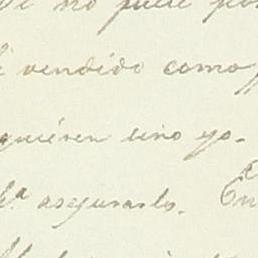 no puede
vendido como
quiéren sino yo.
asegurarlo. En